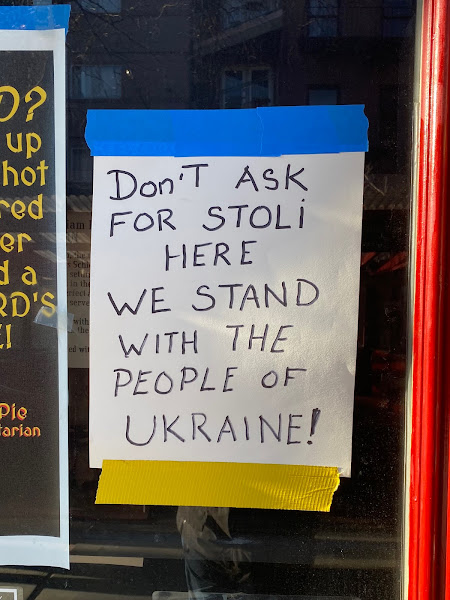 O?
up
hot
red
er
d a
RD'S
Pie
tarian
DON'T ASK
FOR STOLI
HERE
WE STAND
WITH THE
PEOPLE OF
UKRAINE!